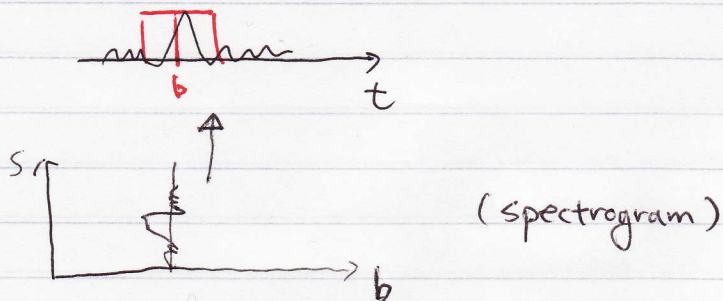 b
t
S
(spectrogram)
b